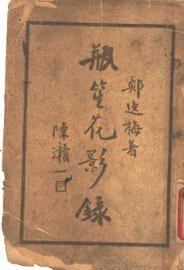 鄭逸梅著
瓶笙花影錄
陳瀏一